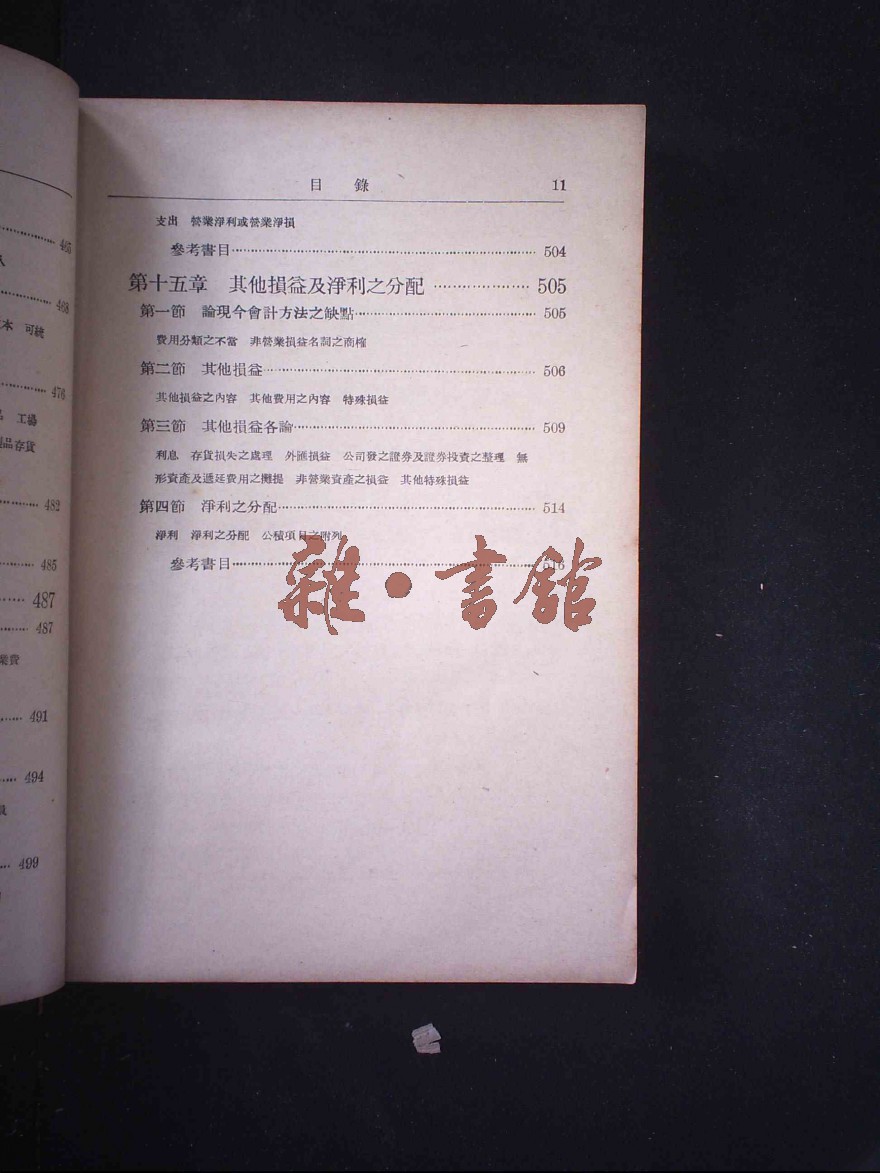 465
468
本 可統
476
品 工場
製品存貨
482
485
487
487
業費
491
494
499
目 錄 11
支出 營業淨利或營業淨損
參考書目 504
第十五章 其他損益及淨利之分配 505
第一節 論現今會計方法之缺點 505
費用分類之不當 非營業損益名詞之商榷
第二節 其他損益 506
其他損益之內容 其他費用之內容 特殊損益
第三節 其他損益各論 509
利息 存貨損失之處理 外匯損益 公司發之證券及證券投資之整理 無
形資產及遞延費用之攤提 非營業資產之損益 其他特殊損益
第四節 淨利之分配 514
淨利 淨利之分配 公積項目之附列
參考書目 516
雜·書館